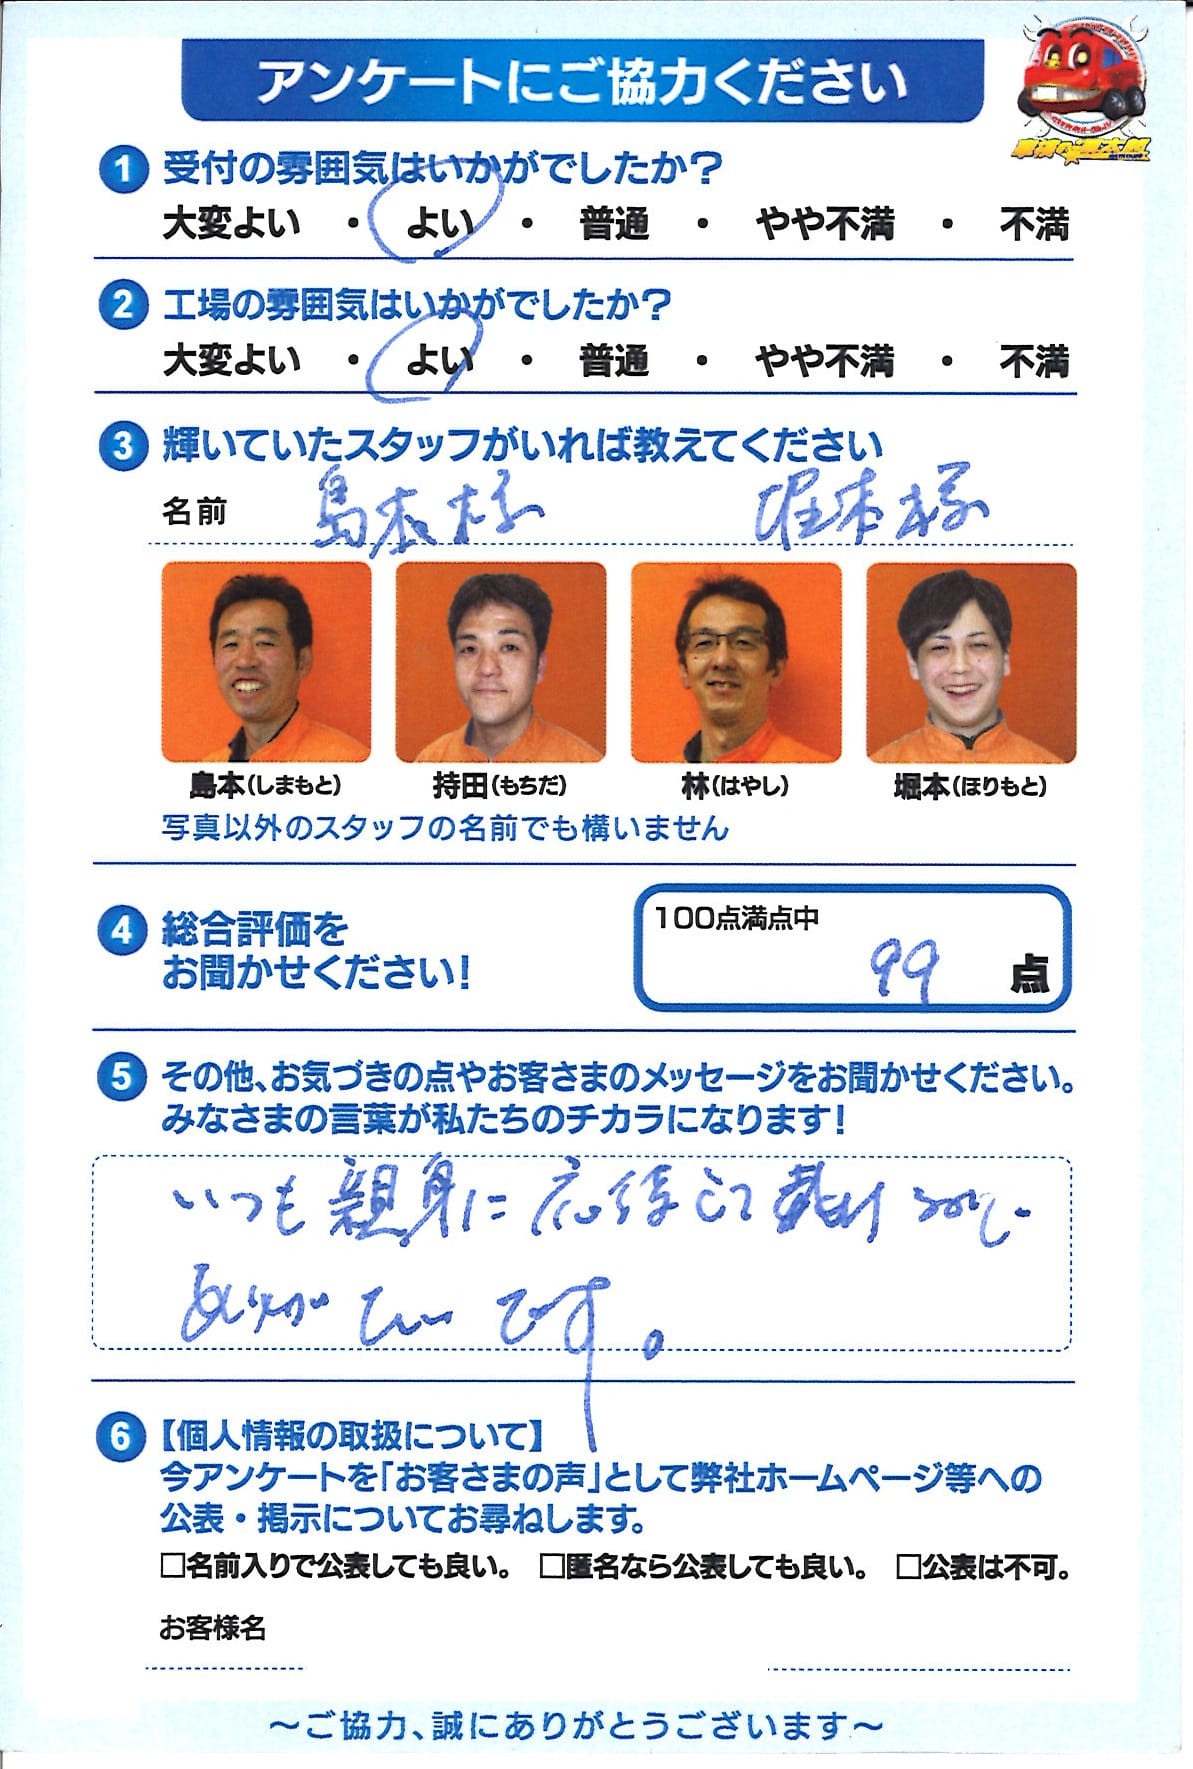 アンケートにご協力ください
1 受付の雰囲気はいかがでしたか？
大変よい ・ よい ・ 普通 ・ やや不満 ・ 不満
2 工場の雰囲気はいかがでしたか？
大変よい ・ よい ・ 普通 ・ やや不満 ・ 不満
3 輝いていたスタッフがいれば教えてください
名前 島本様 堀本様
島本（しまもと） 持田（もちだ） 林（はやし） 堀本（ほりもと）
写真以外のスタッフの名前でも構いません
4 総合評価を
お聞かせください！
100点満点中
99 点
5 その他、お気づきの点やお客さまのメッセージをお聞かせください。
みなさまの言葉が私たちのチカラになります！
いつも親身に応待して戴き
ありがたいです。
6 【個人情報の取扱について】
今アンケートを「お客さまの声」として弊社ホームページ等への
公表・掲示についてお尋ねします。
□名前入りで公表しても良い。 □匿名なら公表しても良い。 □公表は不可。
お客様名
～ご協力、誠にありがとうございます～